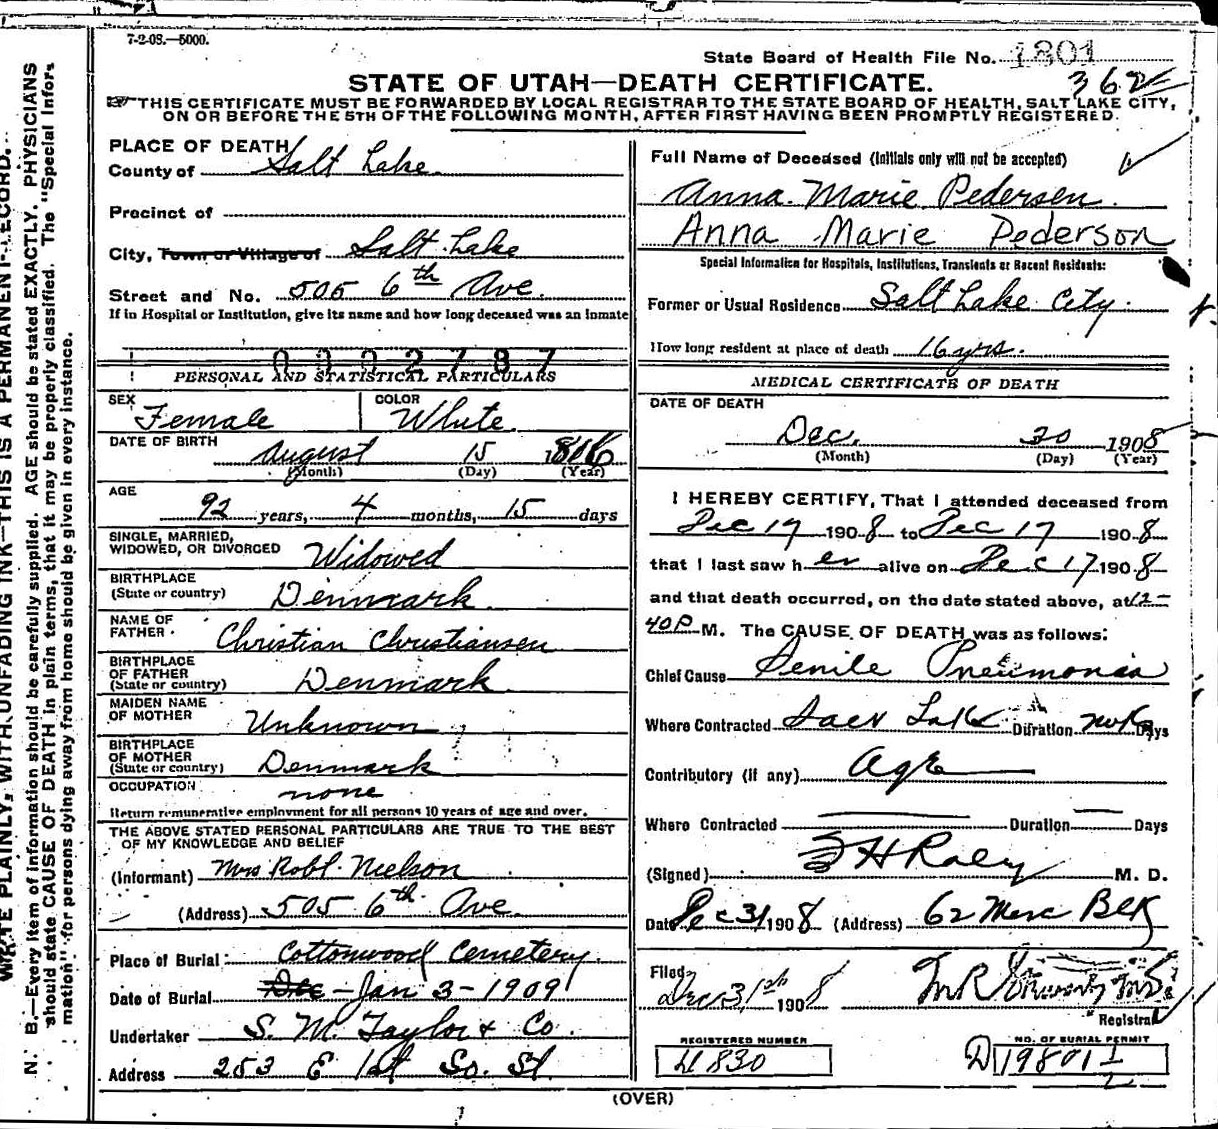 7-2-08.—5000.
State Board of Health File No. 1801
362
STATE OF UTAH—DEATH CERTIFICATE.
THIS CERTIFICATE MUST BE FORWARDED BY LOCAL REGISTRAR TO THE STATE BOARD OF HEALTH, SALT LAKE CITY,
ON OR BEFORE THE 5TH OF THE FOLLOWING MONTH, AFTER FIRST HAVING BEEN PROMPTLY REGISTERED.
WRITE PLAINLY, WITH UNFADING INK—THIS IS A PERMANENT RECORD.
N. B.—Every item of information should be carefully supplied. AGE should be stated EXACTLY. PHYSICIANS
should state CAUSE OF DEATH in plain terms, that it may be properly classified. The "Special Infor-
mation" for persons dying away from home should be given in every instance.
PLACE OF DEATH
County of Salt Lake
Precinct of
City, Town or Village of Salt Lake
Street and No. 505 6th Ave.
If in Hospital or Institution, give its name and how long deceased was an inmate
0302787
PERSONAL AND STATISTICAL PARTICULARS
SEX Female
COLOR White
DATE OF BIRTH August 15 1816
(Month) (Day) (Year)
AGE
92 years, 4 months, 15 days
SINGLE, MARRIED,
WIDOWED, OR DIVORCED Widowed
BIRTHPLACE
(State or country) Denmark
NAME OF
FATHER Christian Christiansen
BIRTHPLACE
OF FATHER
(State or country) Denmark
MAIDEN NAME
OF MOTHER Unknown
BIRTHPLACE
OF MOTHER
(State or country) Denmark
OCCUPATION none
Return remunerative employment for all persons 10 years of age and over.
THE ABOVE STATED PERSONAL PARTICULARS ARE TRUE TO THE BEST
OF MY KNOWLEDGE AND BELIEF
(Informant) Mrs Robt. Nielson
(Address) 505 6th Ave.
Place of Burial: Cottonwood Cemetery
Date of Burial Dec - Jan 3 - 1909
Undertaker S. M. Taylor & Co.
Address 253 E 1st So. St.
Full Name of Deceased (Initials only will not be accepted)
Anna Marie Pedersen
Anna Marie Pederson
Special Information for Hospitals, Institutions, Transients or Recent Residents:
Former or Usual Residence Salt Lake City.
How long resident at place of death 16 yrs.
MEDICAL CERTIFICATE OF DEATH
DATE OF DEATH
Dec. 30 1908
(Month) (Day) (Year)
I HEREBY CERTIFY, That I attended deceased from
Dec 17 1908 to Dec 17 1908
that I last saw her alive on Dec 17 1908
and that death occurred, on the date stated above, at 12-
40 P M. The CAUSE OF DEATH was as follows:
Chief Cause Senile Pneumonia
Where Contracted Salt Lake Duration Days
Contributory (if any) Age
Where Contracted Duration Days
(Signed) M. D.
Date Dec 31 1908 (Address) 62 Merc Blk
Filed Dec. 31st 1908
Registrar
REGISTERED NUMBER
4830
NO. OF BURIAL PERMIT
D 19801 1/2
(OVER)